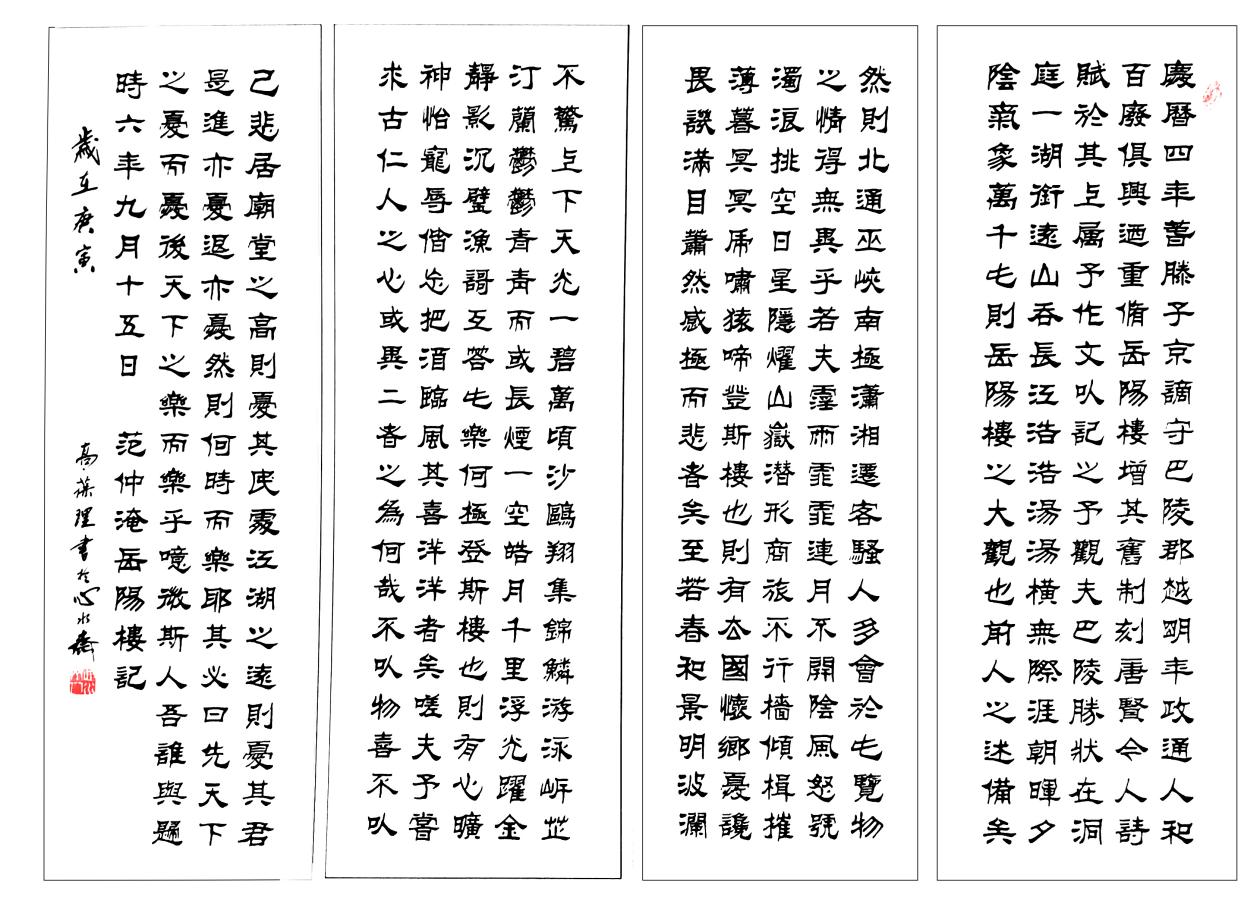 慶曆四年春滕子京謫守巴陵郡越明年政通人和
百廢俱興迺重脩岳陽樓增其舊制刻唐賢今人詩
賦於其上屬予作文以記之予觀夫巴陵勝狀在洞
庭一湖銜遠山吞長江浩浩湯湯橫無際涯朝暉夕
陰氣象萬千此則岳陽樓之大觀也前人之述備矣
然則北通巫峽南極瀟湘遷客騷人多會於此覽物
之情得無異乎若夫霪雨霏霏連月不開陰風怒號
濁浪排空日星隱燿山嶽潛形商旅不行檣傾楫摧
薄暮冥冥虎嘯猿啼登斯樓也則有去國懷鄉憂讒
畏譏滿目蕭然感極而悲者矣至若春和景明波瀾
不驚上下天光一碧萬頃沙鷗翔集錦鱗游泳岸芷
汀蘭鬱鬱青青而或長煙一空皓月千里浮光躍金
靜影沉璧漁謌互答此樂何極登斯樓也則有心曠
神怡寵辱偕忘把酒臨風其喜洋洋者矣嗟夫予嘗
求古仁人之心或異二者之為何哉不以物喜不以
己悲居廟堂之高則憂其民處江湖之遠則憂其君
是進亦憂退亦憂然則何時而樂耶其必曰先天下
之憂而憂後天下之樂而樂乎噫微斯人吾誰與歸
時六年九月十五日 范仲淹岳陽樓記
歲在庚寅 高葆理書於心水齋